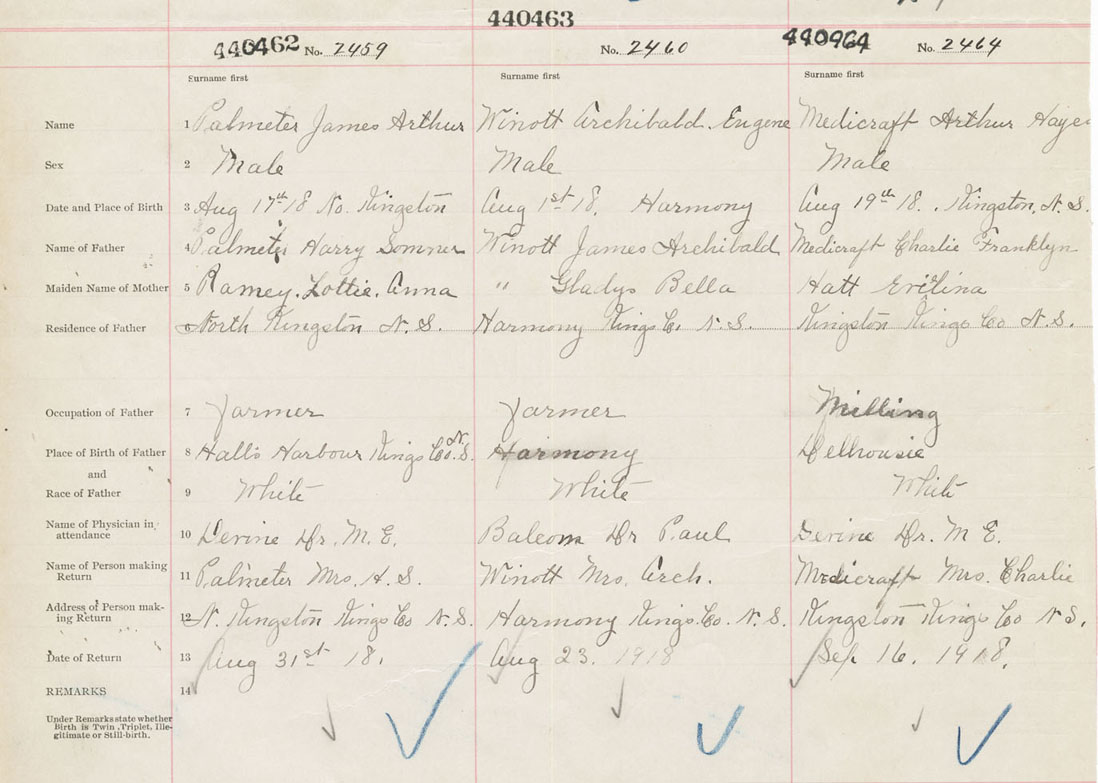 440463
440462 No. 2459 No. 2460 440964 No. 2464
Surname first Surname first Surname first
Name 1 Palmeter James Arthur Winott Archibald Eugene Medicraft Arthur Haye
Sex 2 Male Male Male
Date and Place of Birth 3 Aug 17th 18 No. Kingston Aug 1st 18. Harmony Aug 19th 18. Kingston, N.S.
Name of Father 4 Palmeter Harry Somner Winott James Archibald Medicraft Charlie Franklyn
Maiden Name of Mother 5 Ramey. Lottie. Anna " Gladys Bella Hatt Evelina
Residence of Father 6 North Kingston N.S. Harmony Kings Co. N.S. Kingston Kings Co N.S.
Occupation of Father 7 Farmer Farmer Milling
Place of Birth of Father 8 Hall's Harbour Kings Co. N.S. Harmony Delhousie
and
Race of Father 9 White White White
Name of Physician in attendance 10 Devine Dr. M.E. Balcom Dr Paul Devine Dr. M E.
Name of Person making Return 11 Palmeter Mrs. H.S. Winott Mrs. Arch. Medicraft Mrs. Charlie
Address of Person making Return 12 N. Kingston Kings Co N.S. Harmony Kings Co. N.S. Kingston Kings Co N.S.
Date of Return 13 Aug 31st 18. Aug 23. 1918 Sep 16. 1918.
REMARKS 14
Under Remarks state whether
Birth is Twin, Triplet, Ille-
gitimate or Still-birth.